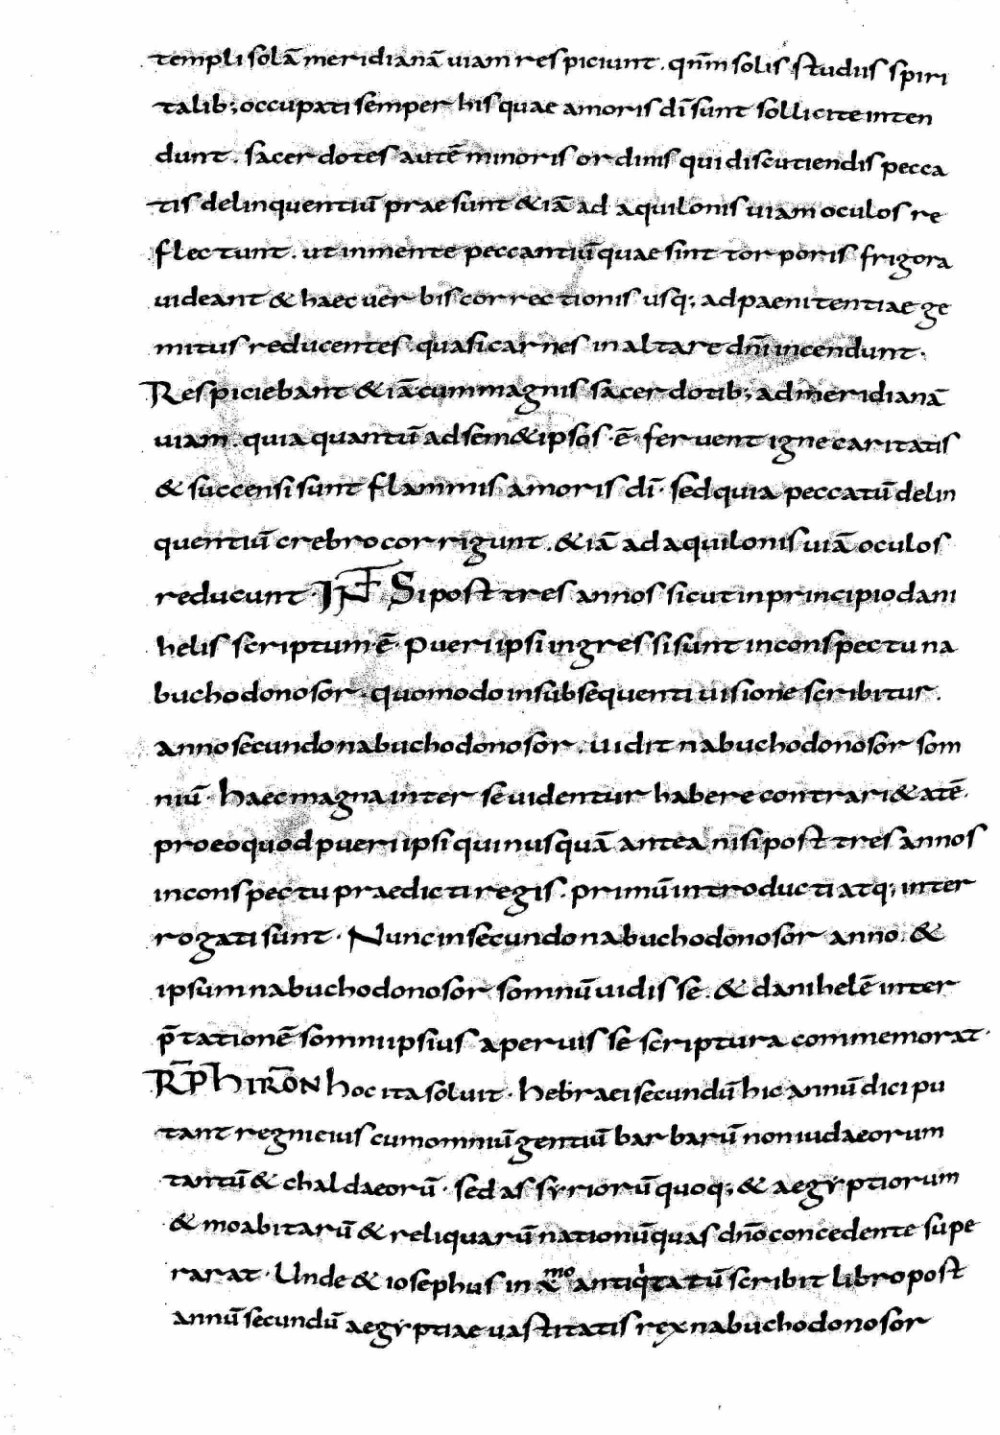 templi solā meridianā uiam respiciunt. qn̄m solis studiis spiri
talib; occupati semper his quae amoris dī sunt sollicite inten
dunt. sacerdotes autē minoris ordinis qui discutiendis pecca
tis delinquentiū praesunt &iā ad aquilonis uiam oculos re
flectunt. ut in mente peccantiū quae sint torporis frigora
uideant & haec uerbis correctionis usq; ad paenitentiae ge
mitus reducentes quasi carnes in altare dn̄i incendunt.
Respiciebant &iā cum magnis sacerdotib; ad meridianā
uiam. quia quantū ad sem&ipsos ē feruent igne caritatis
& succensi sunt flammis amoris dī. sed quia peccatū delin
quentiū crebro corrigunt. &iā ad aquilonis uiā oculos
reducunt. Si post tres annos sicut in principio dani
helis scriptum ē. Pueri ipsi ingressi sunt in conspectu na
buchodonosor. quomodo in subsequenti uisione scribitur.
anno secundo nabuchodonosor. uidit nabuchodonosor som
niū. Haec magna inter se uidentur habere contrari&atē.
pro eo quod pueri ipsi qui nusquā antea nisi post tres annos
in conspectu praedicti regis. primū introducti atq; inter
rogati sunt. Nunc in secundo nabuchodonosor anno. &
ipsum nabuchodonosor somniū uidisse. & danihelē inter
p̄tationē somnii ipsius aperuisse scriptura commemorat.
R̄P HIRŌN hoc ita soluit. hebraei secundū hic annū dici pu
tant regni eius cum omniū gentiū barbarū non iudaeorum
tantū & chaldaeorū. sed assyriorū quoq; & aegyptiorum
& moabitarū & reliquarū nationū quas dn̄o concedente supe
rarat. Unde & iosephus in x̊mo antiqitatū scribit libro post
annū secundū aegyptiae uastitatis rex nabuchodonosor